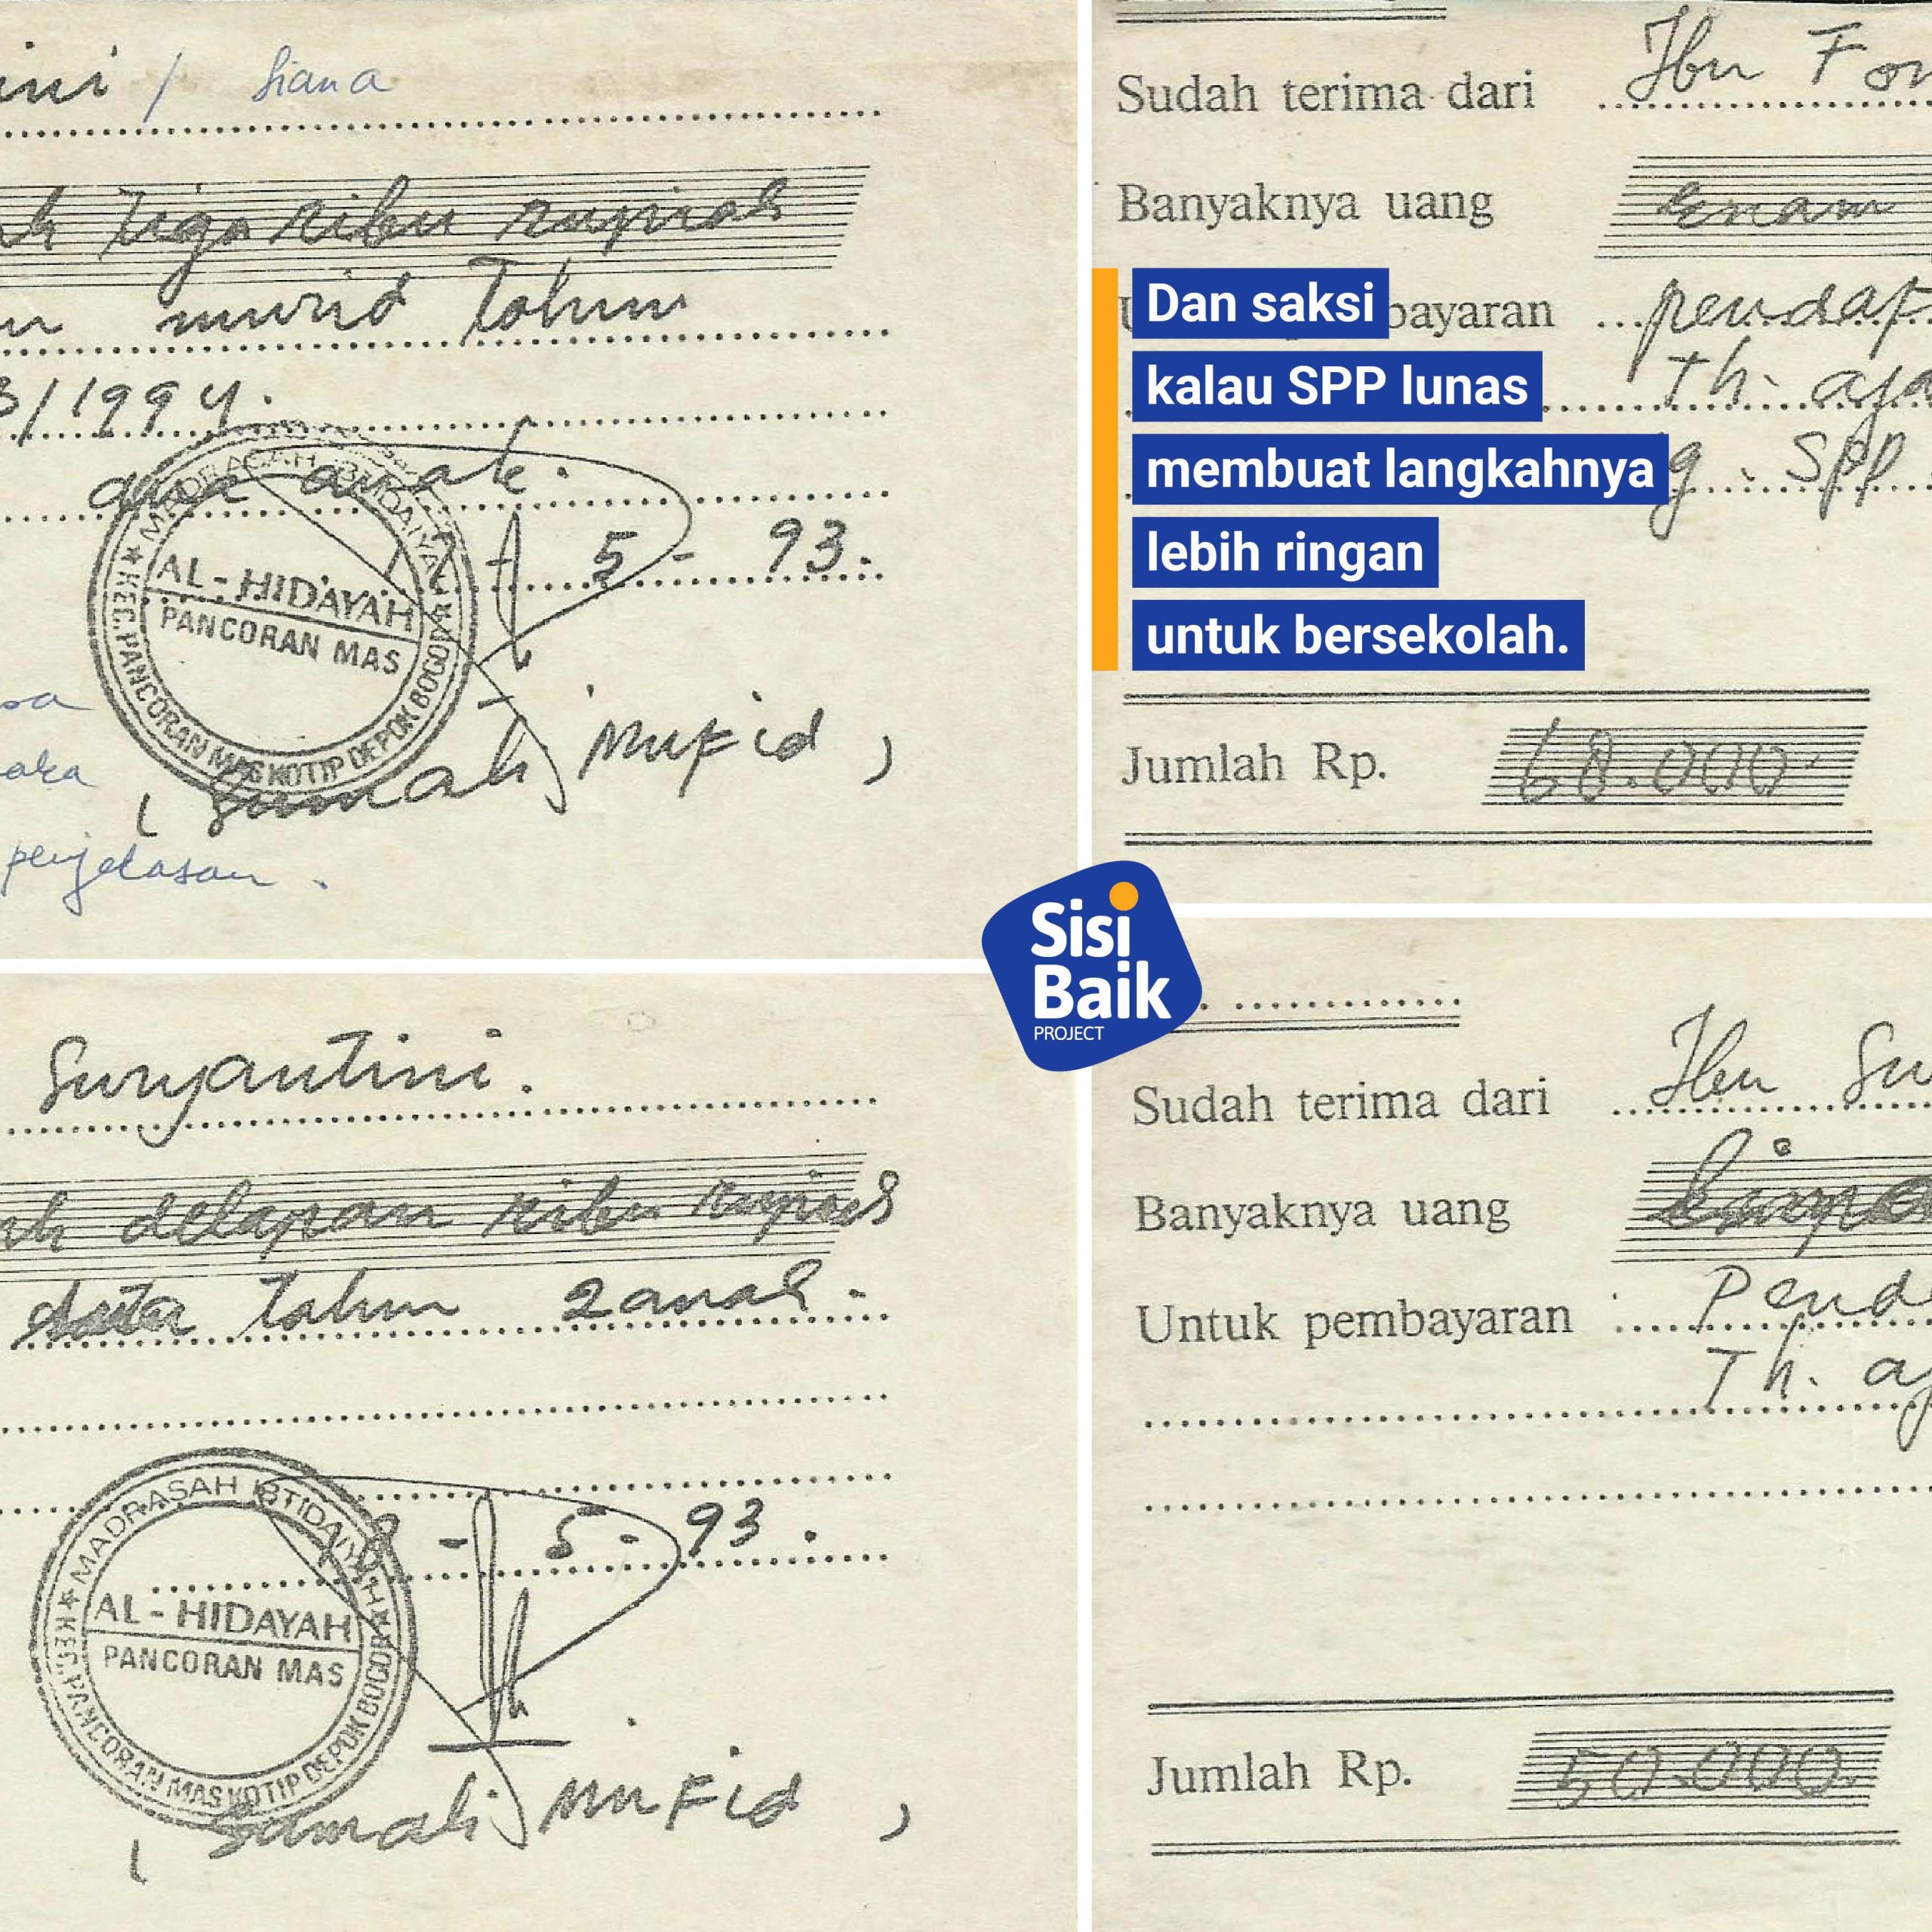 ini / Siana
tiga ribu rupiah
murid Tahun
3/1994.
dua anak.
5 - 93.
MADRASAH IBTIDAIYAH
AL-HIDAYAH
PANCORAN MAS
KEC. PANCORAN MAS KOTIP DEPOK BOGOR
( Sumali Mufid )
penjelasan.
Sudah terima dari Ibu
Banyaknya uang Enam
bayaran pendaf
Th. aja
SPP
Dan saksi
kalau SPP lunas
membuat langkahnya
lebih ringan
untuk bersekolah.
Jumlah Rp. 68.000
Sisi
Baik
PROJECT
Suryantini.
delapan ribu rupiah
tahun 2 anak.
- 5 - 93.
MADRASAH IBTIDAIYAH
AL-HIDAYAH
PANCORAN MAS
KEC. PANCORAN MAS KOTIP DEPOK BOGOR
( Sumali Mufid )
Sudah terima dari Ibu Su
Banyaknya uang
Untuk pembayaran Pend
Th. aj
Jumlah Rp. 50.000